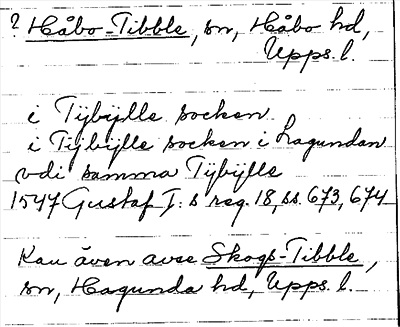 ? Håbo-Tibble, sn, Håbo hd,
Upps. l.
i Tÿbÿlle socken
i Tÿbÿlle socken i Lagundan
vdi samma Tÿbÿlle
1547 Gustaf I:s reg. 18, ss. 673, 674
Kan även avse Skogs-Tibble,
sn, Hagunda hd, Upps. l.